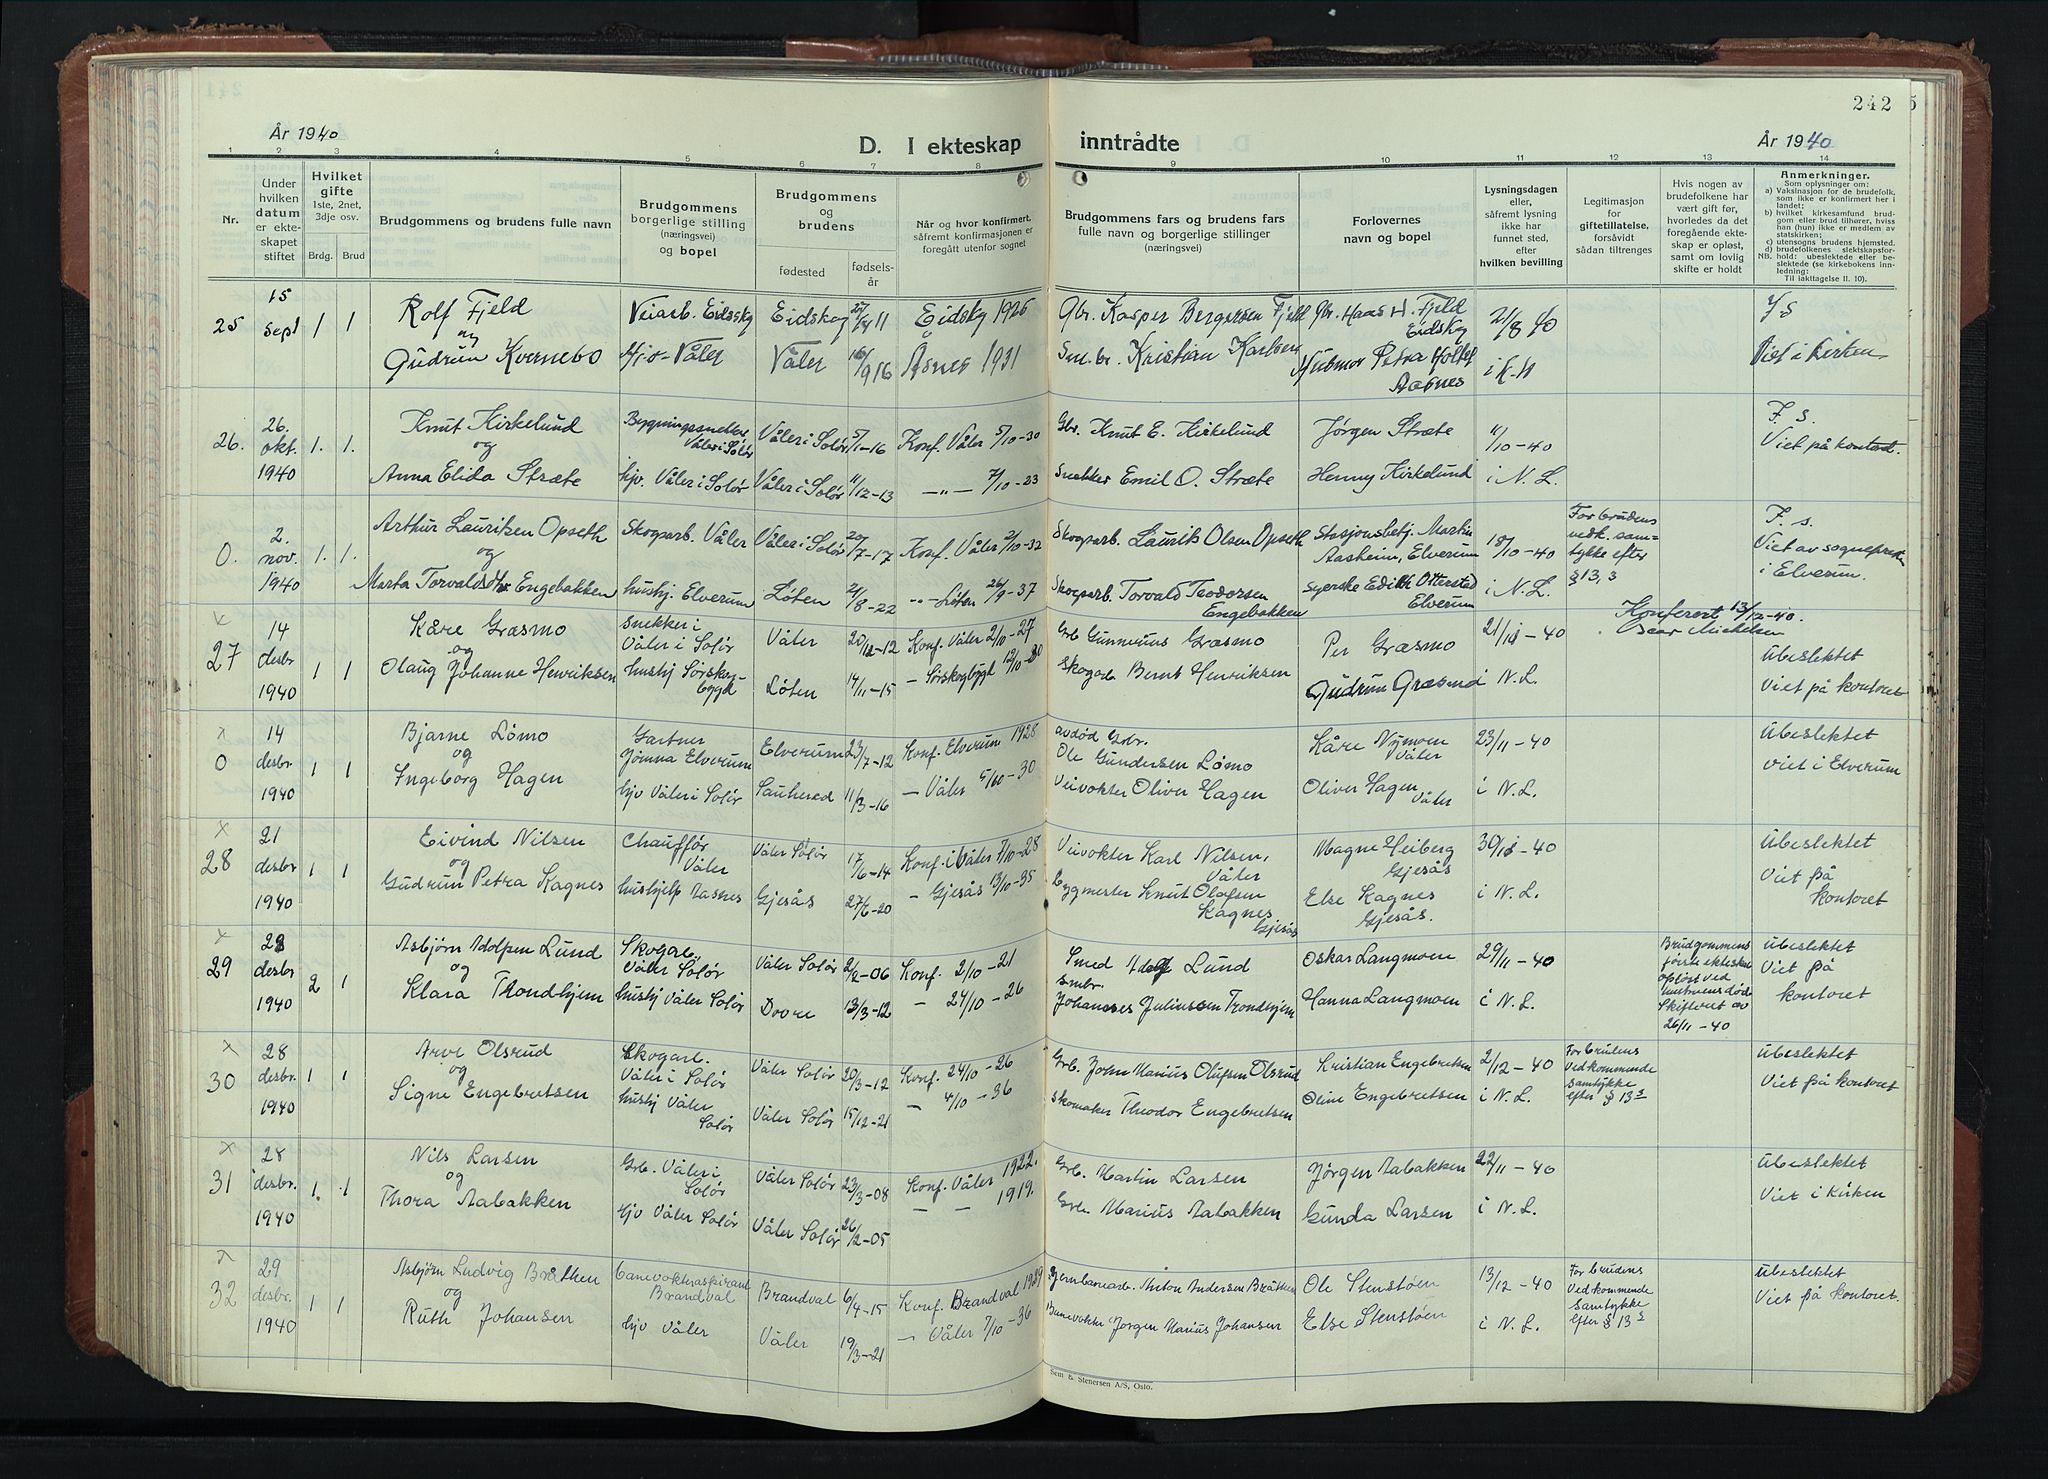 242
År 1940
D. I ekteskap inntrådte
År 1940
1 2 3 4 5 6 7 8 9 10 11 12 13 14
Nr.
Under hvilken datum er ekteskapet stiftet
Hvilket gifte 1ste, 2net, 3dje osv.
Brdg. Brud
Brudgommens og brudens fulle navn
Brudgommens borgerlige stilling (næringsvei) og bopel
Brudgommens og brudens
fødested
fødselsår
Når og hvor konfirmert, såfremt konfirmasjonen er foregått utenfor sognet
Brudgommens fars og brudens fars fulle navn og borgerlige stillinger (næringsvei)
Forlovernes navn og bopel
Lysningsdagen eller, såfremt lysning ikke har funnet sted, efter hvilken bevilling
Legitimasjon for giftetillatelse, forsåvidt sådan tiltrenges
Hvis nogen av brudefolkene har vært gift før, hvorledes da det foregående ekteskap er opløst, samt om lovlig skifte er holdt
Anmerkninger.
Som oplysninger om:
a) Vaksinasjon for de brudefolk, som ikke er konfirmert her i landet;
b) hvilket kirkesamfund brudgom eller brud tilhører, hviss han (hun) ikke er medlem av statskirken;
c) utensogns brudens hjemsted.
d) brudefolkenes slektskapsforhold: ubeslektede eller beslektede (se kirkebokens innledning:
NB. Til iakttagelse II. 10).
25 15 Sept 1 1 Rolf Fjeld Veiarb. Eidskog Eidskog 11 Eidskog 1926 Gbr. Kasper Bergersen Fjeld Gbr. Haas H. Fjeld Eidskog 2/8 40
og
Gudrun Kvernebo Hjv Våler Våler 16/9 16 Åsnes 1931 Sm.br. Kristian Karlsen Husmor Petra Holter Aasnes i K-H Viet i kirken
26. 26. okt. 1940 1. 1. Knut Kirkelund Bygningssnekker Våler i Solør Våler i Solør 5/1-16 Konf. Våler 5/10-30 Gbr. Knut E. Kirkelund Jørgen Stræte 11/10-40 F. s.
og
Anna Elida Stræte hjv. Våler i Solør Våler i Solør 11/12-13 —"— 7/10-23 Snekker Emil O. Stræte Henny Kirkelund i N. L. Viet på kontoret.
0. 2. nov. 1940 1. 1. Arthur Lauritsen Opseth Skogsarb. Våler Våler i Solør 20/7-17 Konf. Våler 2/10-32 Skogsarb. Laurits Olsen Opseth Stasjonsbetj. Martin Aasheim, Elverum 18/10-40 For brudens vedk. samtykke efter § 13, 3 F. s.
og
Marta Torvaldsdtr. Engebakken hushj. Elverum Løten 21/8-22 "— Løten 26/9-37 Skogsarb. Torvald Teodorsen Engebakken Syerske Edith Otterstad Elverum i N. L. Viet av sogneprest i Elverum.
Konferert 13/12-40. Oscar Michelsen
27 14 desbr 1940 1 1 Kåre Græsmo Snekker i Våler i Solør Våler 20/12-12 Konf. Våler 2/10-27 Grb Gunnerius Græsmo Per Græsmo 21/11-40 Ubeslektet
og
Olaug Johanne Henriksen hushj Sørskogbygd Løten 14/11-15 — Sørskogbygd 12/10-30 Skogarb. Bernt Henriksen Gudrun Græsmo i N. L. Viet på kontoret
0 14 desbr 1940 1 1 Bjarne Lømo Gartner Jømna Elverum Elverum 23/7-12 Konf. Elverum 1928 avdød Grbr. Ole Gundersen Lømo Kåre Nymoen Våler 23/11-40 Ubeslektet
og
Ingeborg Hagen hjv Våler i Solør Sauherad 11/3-16 — Våler 5/10-30 Veivokter Oliver Hagen Oliver Hagen Våler i N. L. Viet i Elverum
28 21 desbr 1940 1 1 Eivind Nilsen Chauffør Våler Våler Solør 17/6-14 Konf. i Våler 7/10-28 Veivokter Karl Nilsen, Våler Magne Heiberg Gjesås 30/11-40 Ubeslektet
og
Gudrun Petra Kagnes hushjelp Aasnes Gjesås 27/6-20 — Gjesås 13/10-35 Bygmester Knut Olafsen Kagnes Gjesås Else Kagnes Gjesås. i N. L. Viet på kontoret
29 28 desbr 1940 2 1 Asbjørn Adolfsen Lund Skogar. Våler Solør Våler Solør 2/2-06 Konf. 2/10-21 Smed Adolf Lund Oskar Langmoen 29/11-40 Brudgommens første ekteskap opløst ved hustruens død Skifteret av 26/11-40 Ubeslektet
og
Klara Trondhjem hushj Våler Solør Dovre 13/3-12 — 24/10-26 Smbr. Johannes Juliussen Trondhjem Hanna Langmoen i N. L. Viet på kontoret
30 28 desbr. 1940 1 1 Arve Olsrud Skogarb. Våler i Solør Våler Solør 20/3-12 Konf. 24/10-26 Grb. John Marius Olufsen Olsrud Kristian Engebretsen 2/12-40 For brudens Vedkommende samtykke efter § 13 3 Ubeslektet
og
Signe Engebretsen hushj Våler Solør Våler Solør 15/12-21 — 4/10-36 Skomaker Theodor Engebretsen Oline Engebretsen i N. L. Viet på kontoret
31 28 desbr. 1940 1. 1 Nils Larsen Grb. Våler i Solør Våler Solør 23/3-08 Konf. Våler 1922. Grb. Martin Larsen Jørgen Aabakken 22/11-40 Ubeslektet
og
Thora Aabakken hjv Våler Solør Våler Solør 26/2-05 — — 1919. Grb. Marius Aabakken Gunda Larsen i N. L. Viet i Kirken
32 29 desbr. 1940 1 1 Asbjørn Ludvig Bråthen banevokteraspirant Brandval Brandval 6/4-15 Konf. Brandval 1929 Jernbanearb. Anton Andersen Bråthen Ole Stenstøen 13/12-40 For brudens Vedkommende samtykke efter § 13 3 Ubeslektet
og
Ruth Johansen hjv Våler Våler 19/3-21 — Våler 7/10-36 Banevokter Jørgen Marius Johansen Else Stenstøen i N. L. Viet på kontoret.
Sem & Stenersen A/S, Oslo.